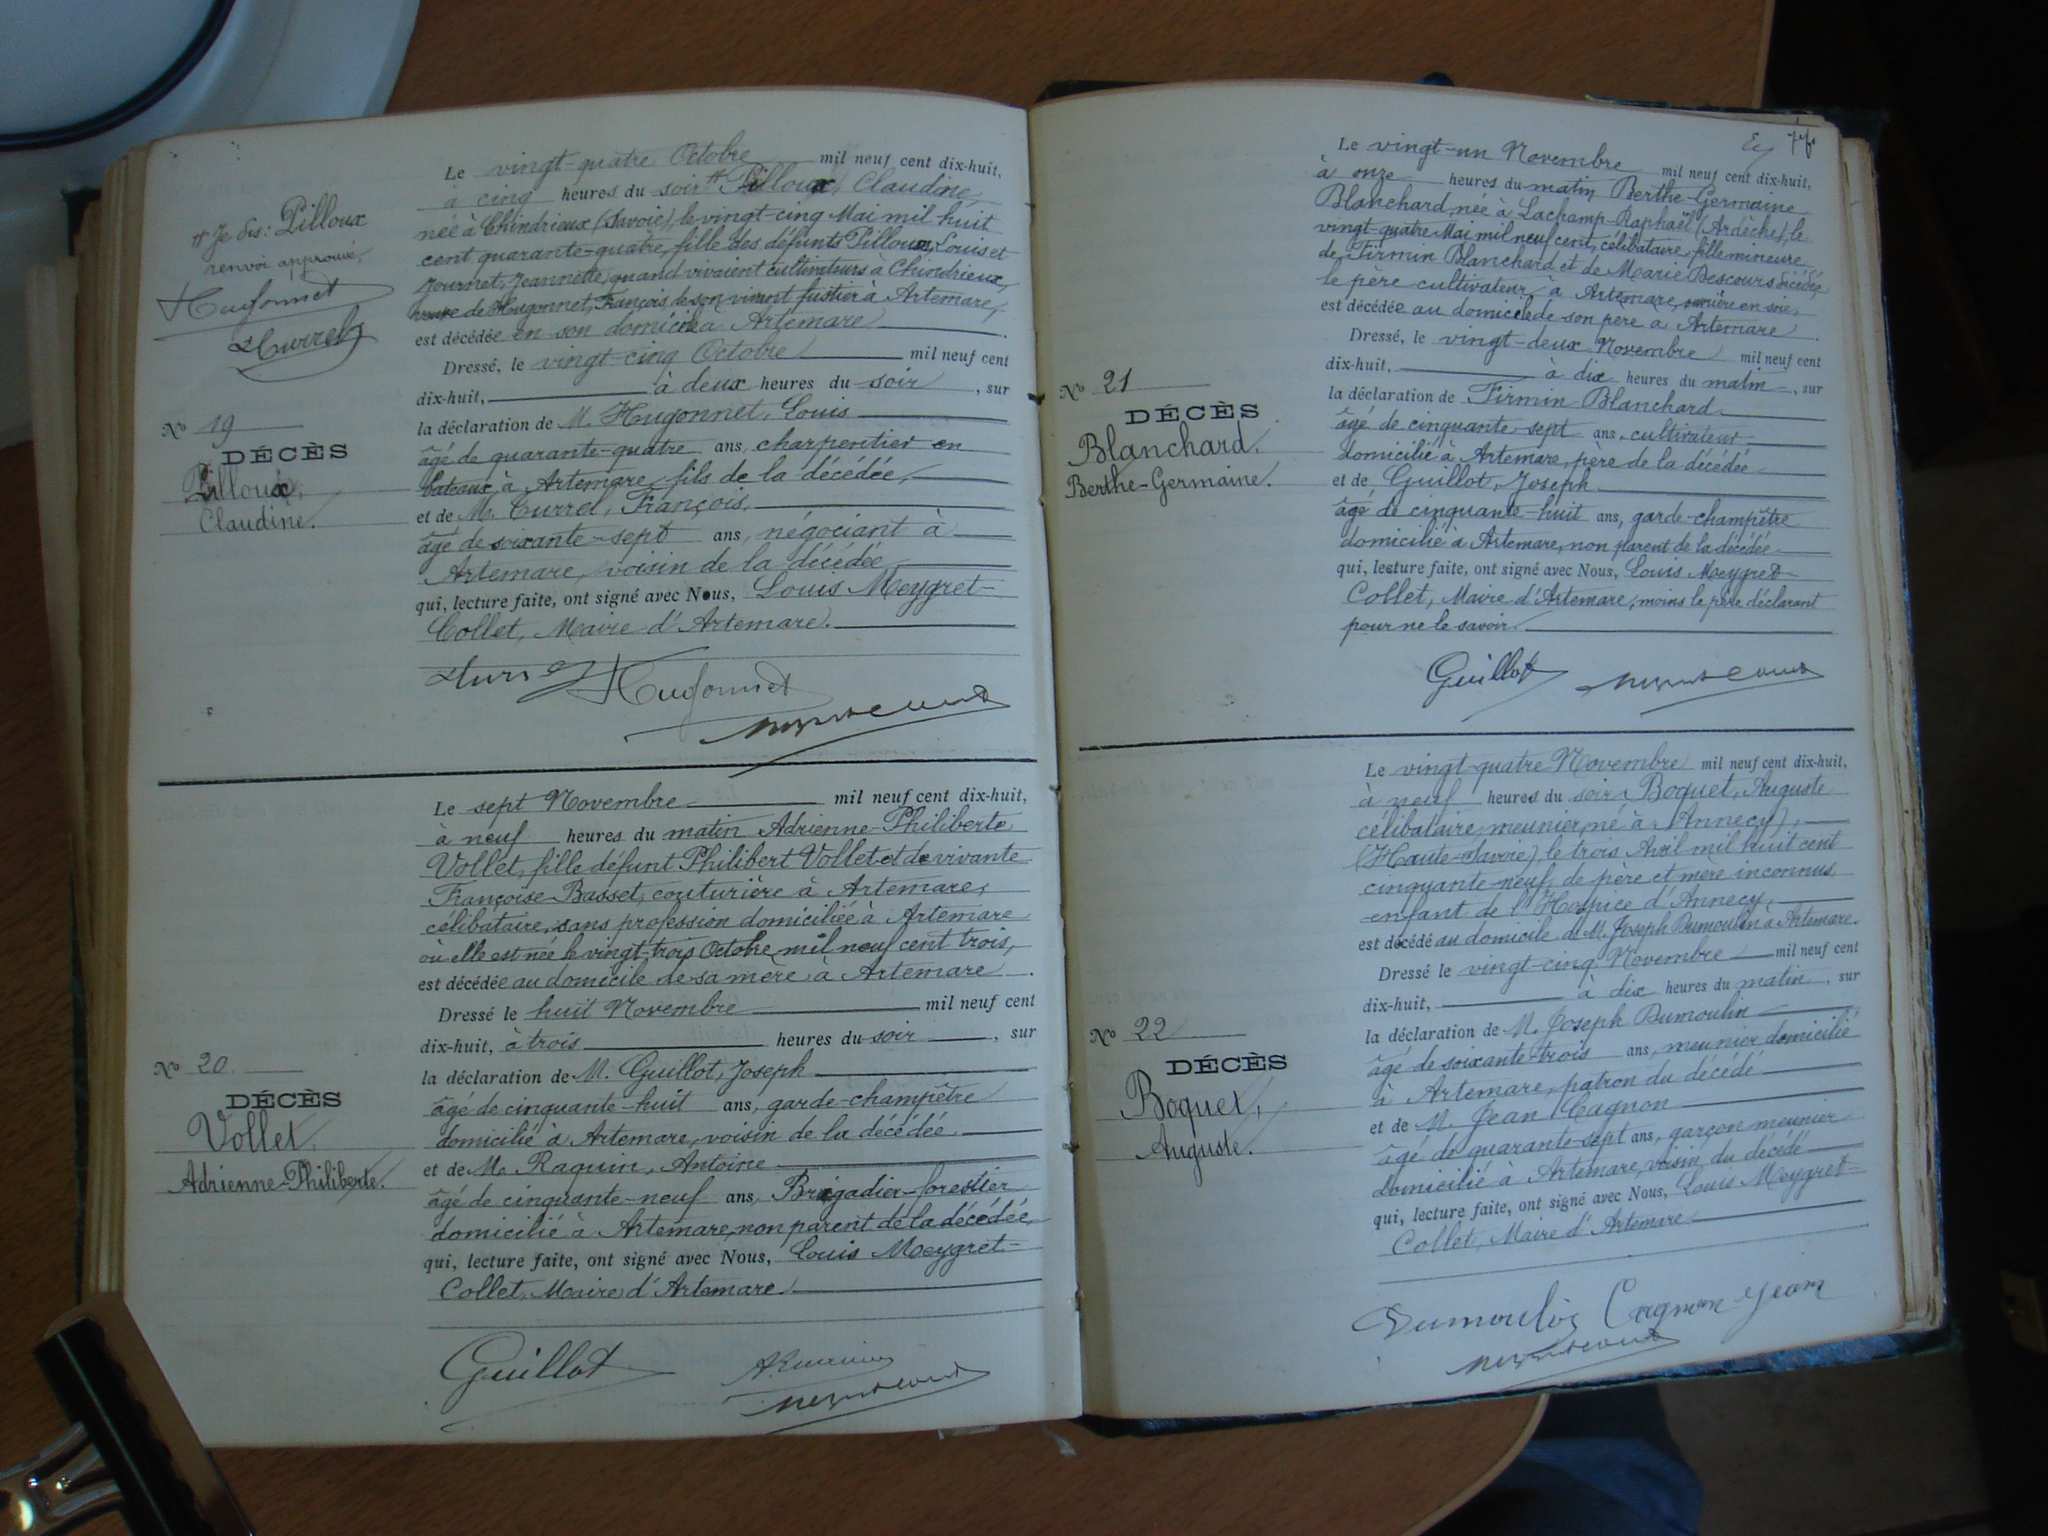 Le vingt-quatre Octobre mil neuf cent dix-huit,
à cinq heures du soir # Pilloux, Claudine
née à Chindrieux (Savoie), le vingt-cinq Mai mil huit
cent quarante-quatre, fille des défunts Pilloux, Louis et
Journet, Jeannette, quand vivaient cultivateurs à Chindrieux,
veuve de Hugonnet, François de son vivant fustier à Artemare,
est décédée en son domicile à Artemare
Dressé, le vingt-cinq Octobre mil neuf cent
dix-huit, à deux heures du soir, sur
la déclaration de M. Hugonnet, Louis
âgé de quarante-quatre ans, charpentier en
bateaux à Artemare, fils de la décédée,
et de M. Curret, François,
âgé de soixante-sept ans, négociant à
Artemare, voisin de la décédée
qui, lecture faite, ont signé avec Nous, Louis Meygret-
Collet, Maire d'Artemare.
Hugonnet
# Je dis: Pilloux
renvoi approuvé,
Hugonnet
No 19
DÉCÈS
Pilloux,
Claudine.
Le sept Novembre mil neuf cent dix-huit,
à neuf heures du matin Adrienne-Philiberte
Vollet, fille défunt Philibert Vollet et de vivante
Françoise Basset, couturière à Artemare,
célibataire, sans profession domiciliée à Artemare
où elle est née le vingt-trois Octobre mil neuf cent trois,
est décédée au domicile de sa mère à Artemare.
Dressé le huit Novembre mil neuf cent
dix-huit, à trois heures du soir, sur
la déclaration de M. Guillot, Joseph
âgé de cinquante-huit ans, garde-champêtre
domicilié à Artemare, voisin de la décédée
et de M. Raquin, Antoine
âgé de cinquante-neuf ans, Brigadier-forestier
domicilié à Artemare, non parent de la décédée,
qui, lecture faite, ont signé avec Nous, Louis Meygret-
Collet, Maire d'Artemare.
Guillot
No 20.
DÉCÈS
Vollet,
Adrienne-Philiberte.
Le vingt-un Novembre mil neuf cent dix-huit,
à onze heures du matin Berthe-Germaine
Blanchard, née à Lachamp-Raphaël (Ardèche), le
vingt-quatre Mai mil neuf cent, célibataire, fille mineure
de Firmin Blanchard et de Marie Descours décédée,
le père cultivateur à Artemare, ouvrière en soie,
est décédée au domicile de son père à Artemare.
Dressé, le vingt-deux Novembre mil neuf cent
dix-huit, à dix heures du matin, sur
la déclaration de Firmin Blanchard
âgé de cinquante-sept ans, cultivateur
domicilié à Artemare, père de la décédée
et de Guillot, Joseph
âgé de cinquante-huit ans, garde-champêtre
domicilié à Artemare, non parent de la décédée
qui, lecture faite, ont signé avec Nous, Louis Meygret-
Collet, Maire d'Artemare, moins le père déclarant
pour ne le savoir.
Guillot
No 21
DÉCÈS
Blanchard.
Berthe-Germaine.
Le vingt-quatre Novembre mil neuf cent dix-huit,
à neuf heures du soir Boquet, Auguste
célibataire, meunier, né à Annecy,
(Haute-Savoie), le trois Avril mil huit cent
cinquante-neuf, de père et mère inconnus,
enfant de l'Hospice d'Annecy,
est décédé au domicile de M. Joseph Dumoulin à Artemare.
Dressé le vingt-cinq Novembre mil neuf cent
dix-huit, à dix heures du matin, sur
la déclaration de M. Joseph Dumoulin
âgé de soixante-trois ans, meunier domicilié
à Artemare, patron du décédé
et de M. Jean Cagnon
âgé de quarante-sept ans, garçon meunier
domicilié à Artemare, voisin du décédé
qui, lecture faite, ont signé avec Nous, Louis Meygret-
Collet, Maire d'Artemare
Dumoulin Cagnon Jean
No 22
DÉCÈS
Boquet,
Auguste.